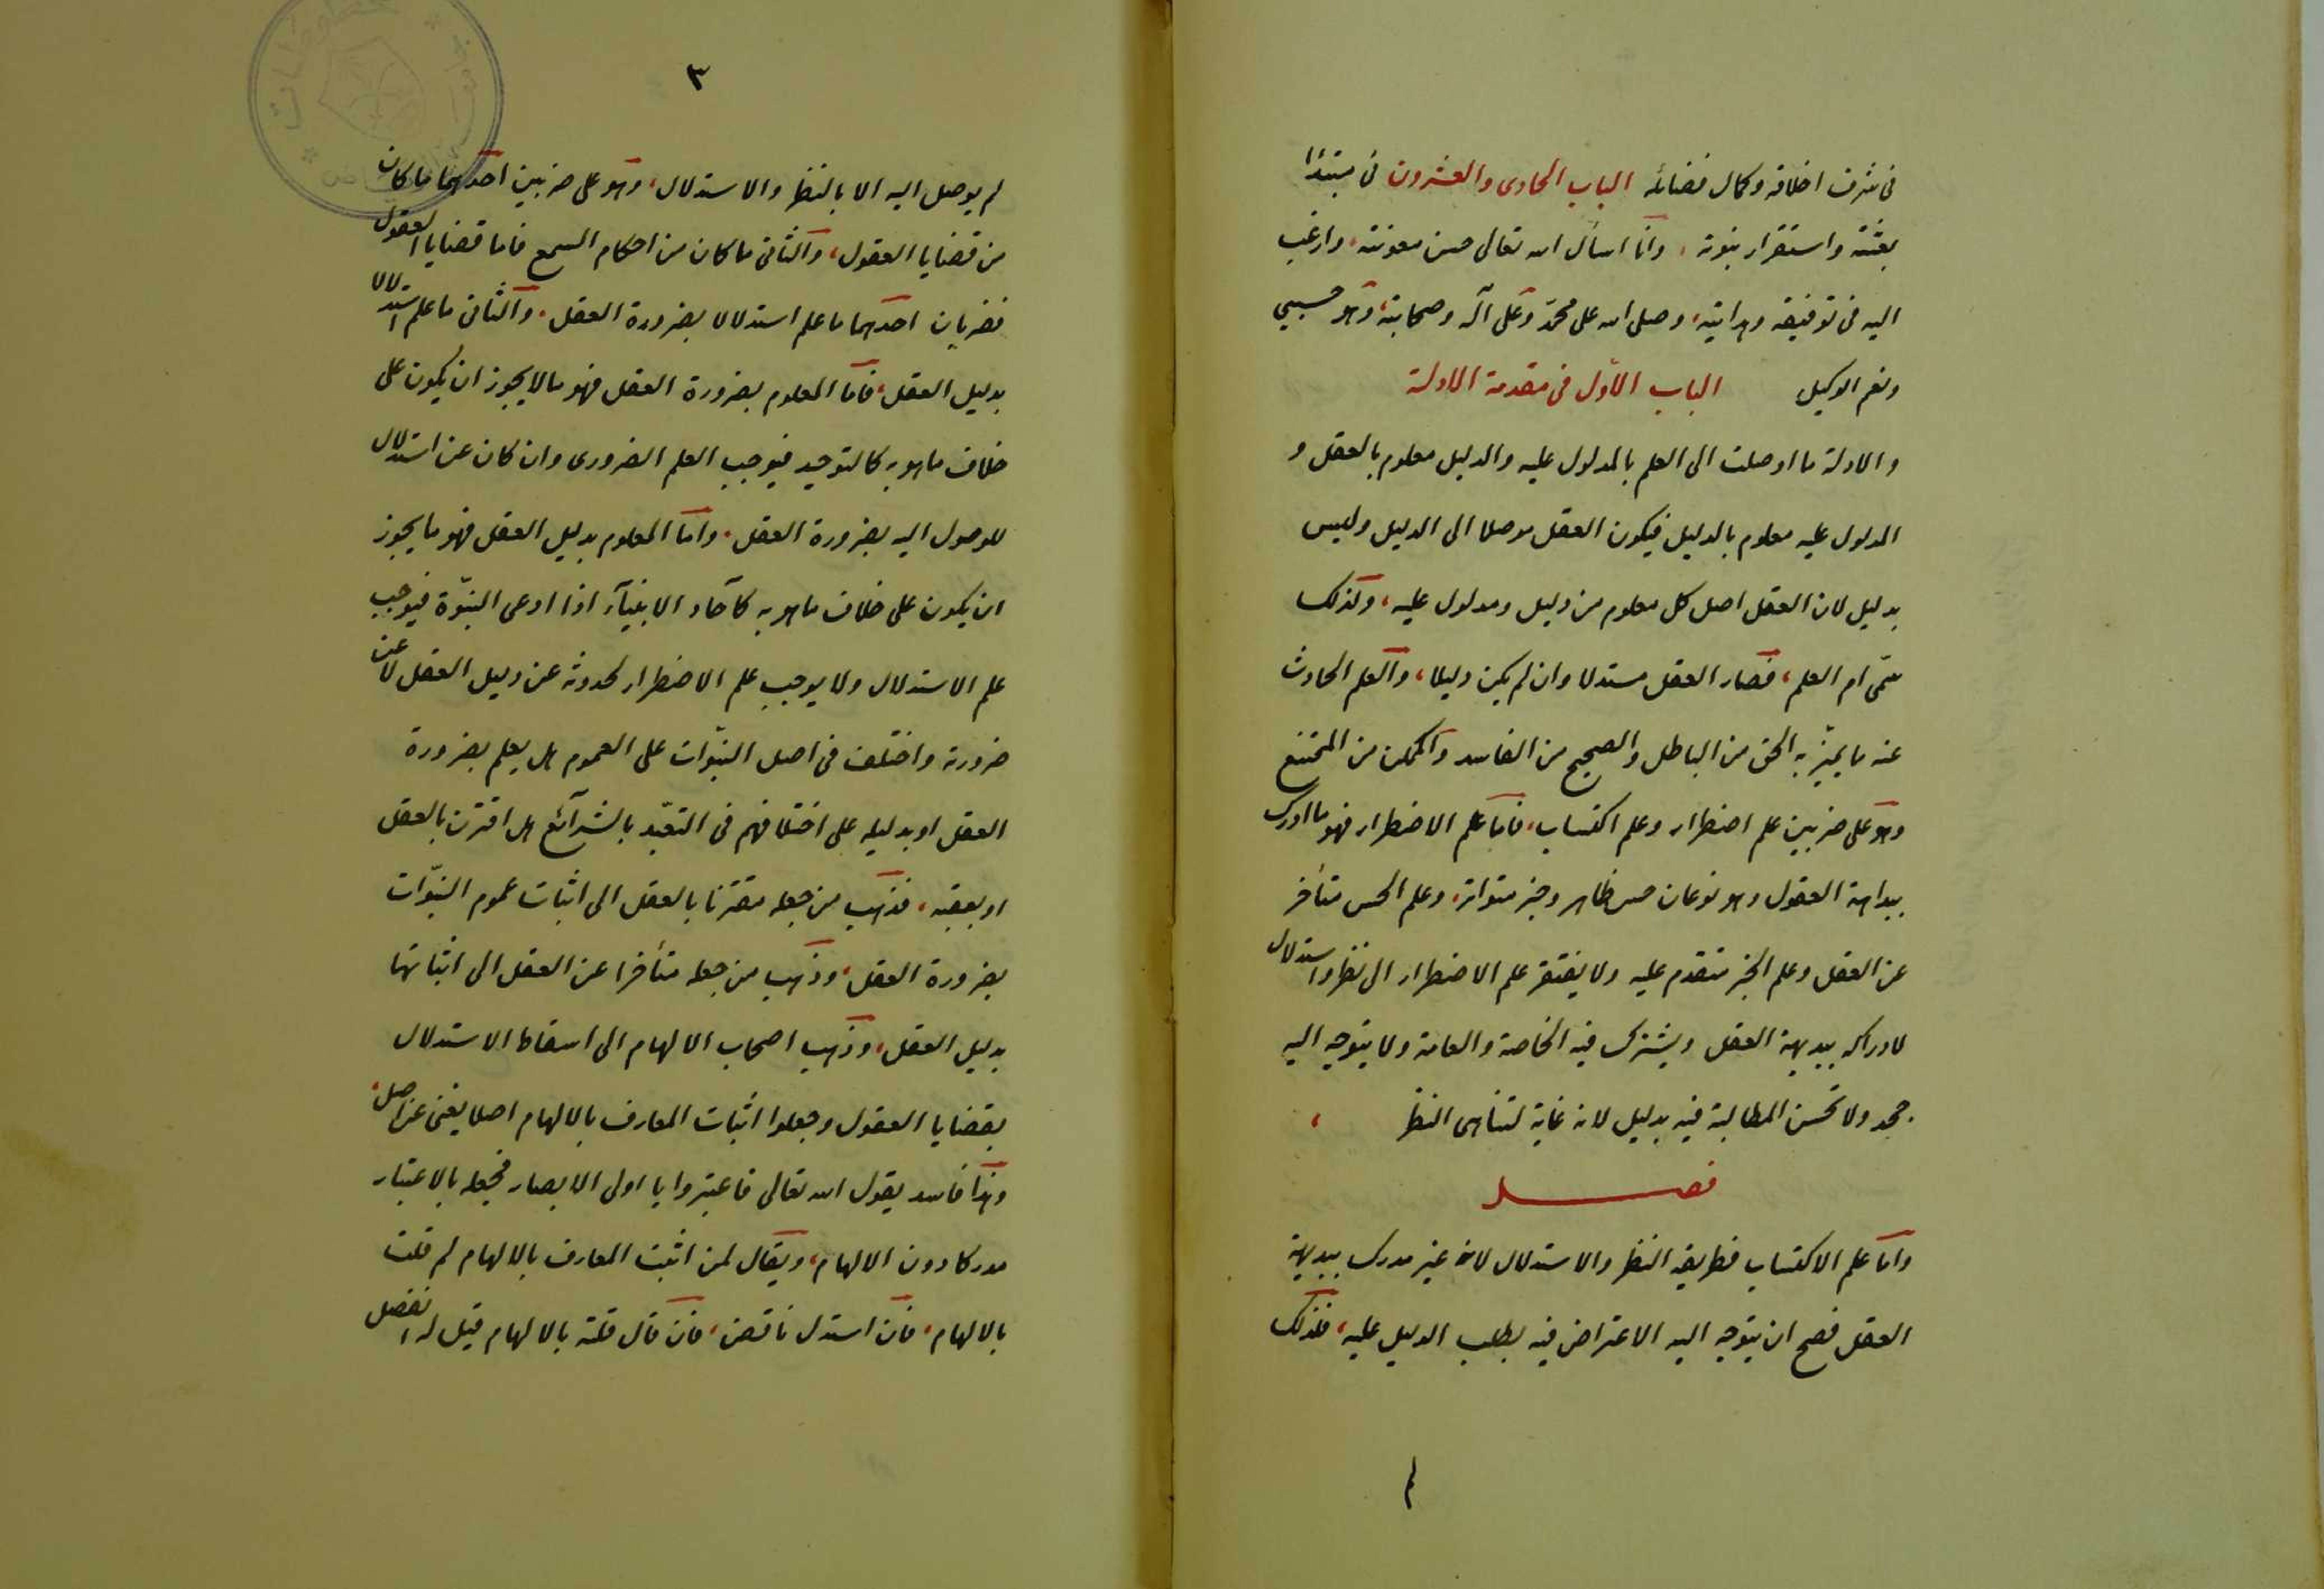 فى شرف اخلاقه وكمال فضائله الباب الحادى والعشرون فى مبتدإ
بعثته واستقرار نبوته ، وانا اسأل الله تعالى حسن معونته ، وارغب
اليه فى توفيقه وهدايته ، وصلى الله على محمّد وعلى آله وصحابته ، وهو حسبى
ونعم الوكيل الباب الأول فى مقدمة الادلة
والادلة ما اوصلت الى العلم بالمدلول عليه والدليل معلوم بالعقل و
المدلول عليه معلوم بالدليل فيكون العقل موصلا الى الدليل وليس
بدليل لان العقل اصل كل معلوم من دليل ومدلول عليه ، ولذلك
سمّى ام العلم ، فصار العقل مستدلا وان لم يكن دليلا ، والعلم الحادث
عنه ما يميّز به الحق من الباطل والصحيح من الفاسد والممكن من الممتنع
وهو على ضربين علم اضطرار وعلم اكتساب ، فاما علم الاضطرار فهو ما ادرك
ببداهة العقول وهو نوعان حس ظاهر وخبر متواتر ، وعلم الحس متأخر
عن العقل وعلم الخبر متقدم عليه ولا يفتقر علم الاضطرار الى نظر واستدلال
لادراكه ببديهة العقل ويشترك فيه الخاصة والعامة ولا يتوجه اليه
جحد ولا تحسن المطالبة فيه بدليل لانه غاية لتناهى النظر ،
فصل
واما علم الاكتساب فطريقه النظر والاستدلال لانه غير مدرك ببديهة
العقل فصح ان يتوجه اليه الاعتراض فيه بطلب الدليل عليه ، فلذلك
لم
٣
لم يوصل اليه الا بالنظر والاستدلال ، وهو على ضربين احدهما ما كان
من قضايا العقول ، والثانى ما كان من احكام السمع فاما قضايا العقول
فضربان احدهما ما علم استدلالا بضرورة العقل ، والثانى ما علم استدلالا
بدليل العقل ، فاما المعلوم بضرورة العقل فهو ما لا يجوز ان يكون على
خلاف ما هو به كالتوحيد فيوجب العلم الضرورى وان كان عن استدلال
للوصول اليه بضرورة العقل ، واما المعلوم بدليل العقل فهو ما يجوز
ان يكون على خلاف ما هو به كآحاد الانبيآء اذا ادعى النبوّة فيوجب
علم الاستدلال ولا يوجب علم الاضطرار لحدوثه عن دليل العقل لا عن
ضرورته واختلف فى اصل النبوّات على العموم هل يعلم بضرورة
العقل او بدليله على اختلافهم فى التعبّد بالشرآئع هل اقترن بالعقل
او بعقبه ، فذهب من جعله مقترنا بالعقل الى اثبات عموم النبوّات
بضرورة العقل ، وذهب من جعله متأخرا عن العقل الى اثباتها
بدليل العقل ، وذهب اصحاب الالهام الى اسقاط الاستدلال
بقضايا العقول وجعلوا اثبات المعارف بالالهام اصلا يغنى عن اصل ،
وهذا فاسد بقول الله تعالى فاعتبروا يا اولى الابصار فجعله بالاعتبار
مدركا دون الالهام ، ويقال لمن اثبت المعارف بالالهام لم قلت
بالالهام ، فان استدل ناقض ، فان قال قلته بالالهام قيل له انفصل